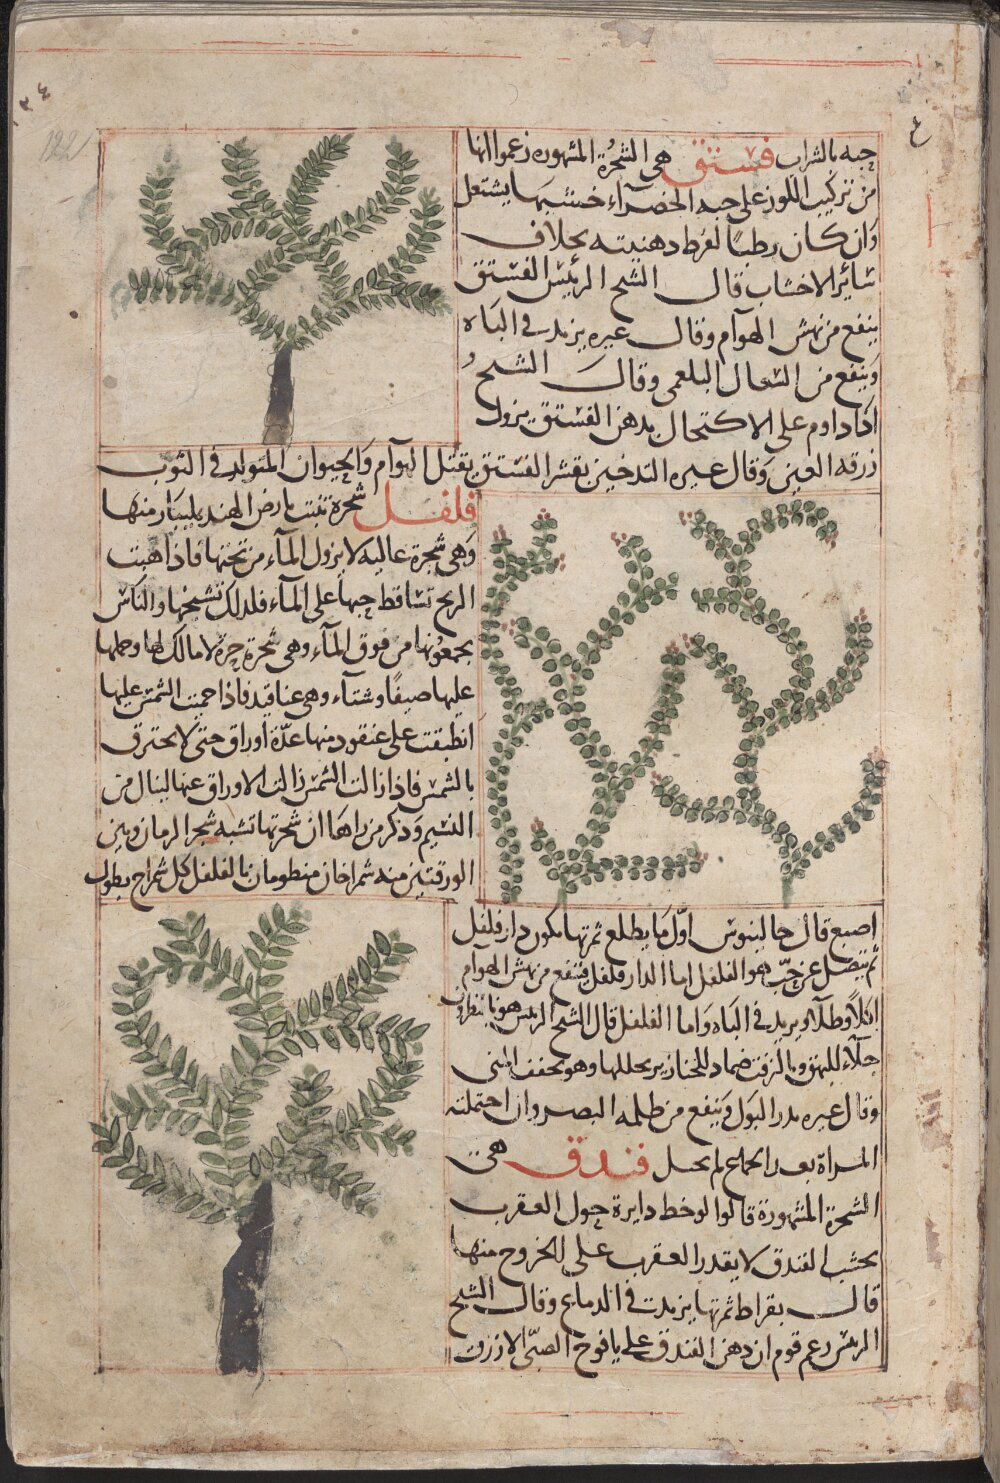 ١٣٤
122
حبه بالشراب فستق هي الشجرة المشهورة زعموا انها
من تركيب اللوز على حبه الخضرآء خشبها يشتعل
وان كان رطبا لفرط دهنيته بخلاف
سائر الاخشاب قال الشيخ الرئيس الفستق
ينفع من نهش الهوآم وقال غيره يزيد في الباه
وينفع من السعال البلغمى وقال الشيخ
اذا داوم على الاكتحال بدهن الفستق يزول
زرقه العين وقال غيره التدخين بقشر الفستق يقتل الهوآم والحيوان المتولد في الثوب
فلفل شجرة تنبت بارض الهند بمليبار منها
وهي شجرة عاليه لا يزول المآء من تحتها فاذا هبت
الريح تساقط حبها على المآء فلذلك تشنجها والناس
يجمعونها من فوق المآء وهي شجرة حرة لا مالك لها وحملها
عليها صيفا وشتآء وهي عناقيد فاذا حميت الشمس عليها
انطبقت على عنقود منها عدة اوراق حتى لا يحترق
بالشمس فاذا زالت الشمس زالت الاوراق عنها لينال من
النسيم وذكر من راها ان شجرتها تشبه شجر الرمان وبين
الورقتين منه شمراخان منظومان بالفلفل كل شمراخ بطول
اصبع قال جالينوس اول ما يطلع ثمرتها يكون دارفلفل
ثم ينفصل عن حب هو الفلفل اما الدارفلفل فتنفع من نهش الهوام
اكلا وطلآء ويزيد في الباه واما الفلفل قال الشيخ الرئيس هو بالنطرون
جلآء للبهق وبالزفت ضماد للخنازير يحللها وهو يجفف المنى
وقال غيره يدر البول وينفع من ظلمه البصر وان احتملته
المراة بعد الجماع لم تحبل فندق هي
الشجرة المشهورة قالوا لو خط دايرة حول العقرب
بخشب الفندق لا يقدر العقرب على الخروج منها
قال بقراط ثمرتها يزيد في الدماغ وقال الشيخ
الرئيس زعم قوم ان دهن الفندق على يافوخ الصبى الازرق